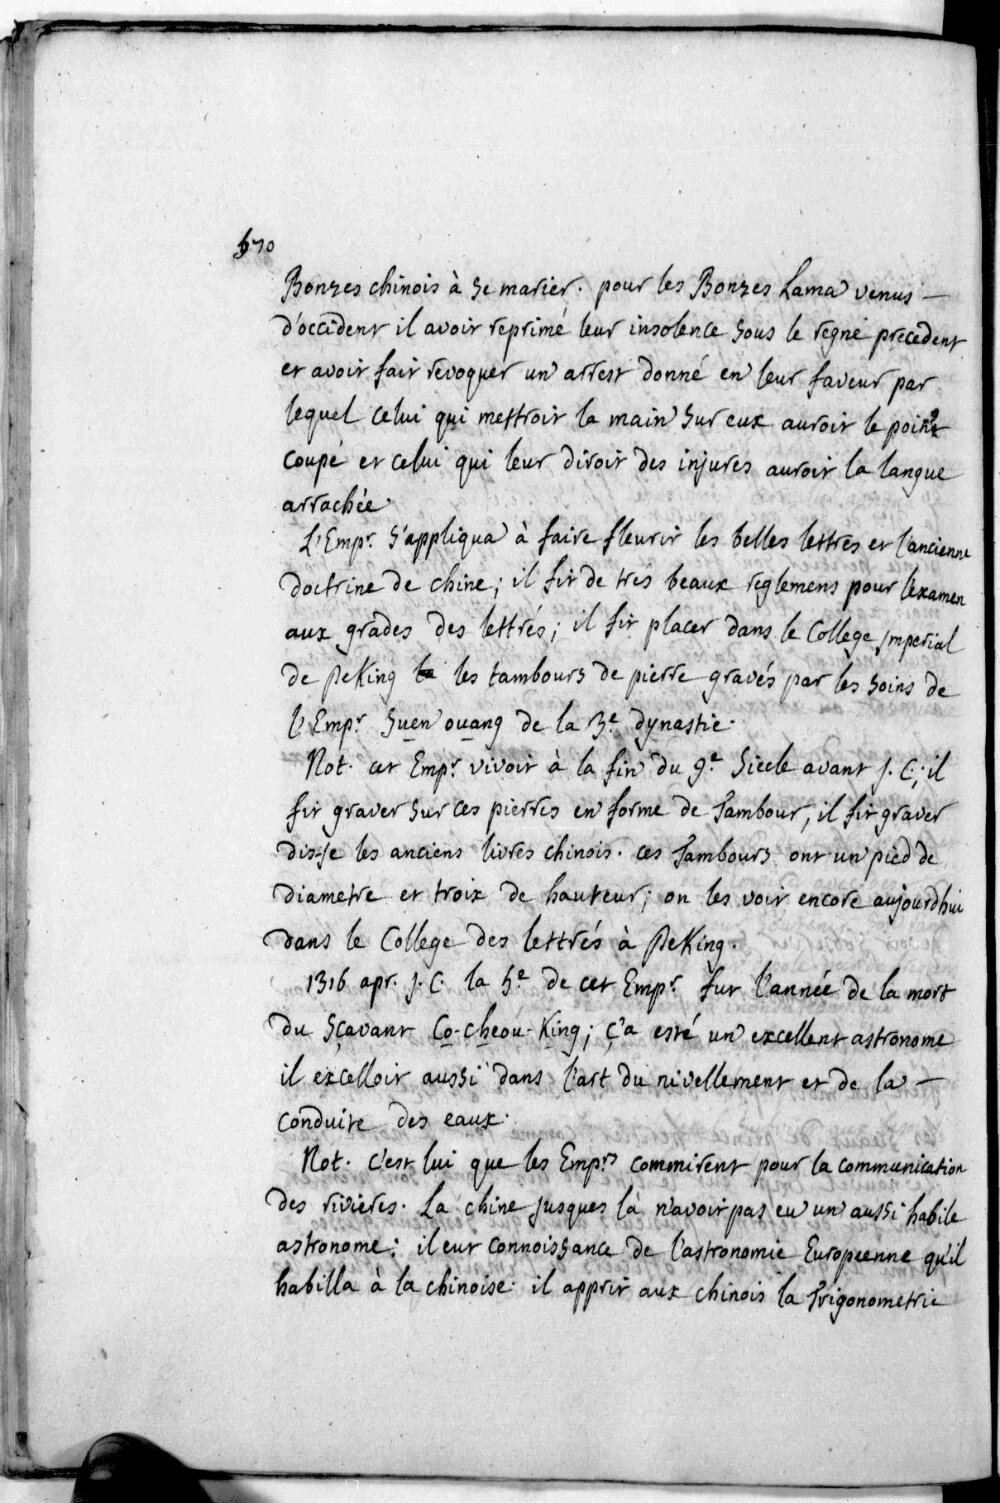 570
Bonzes chinois à se marier. pour les Bonzes Lama venus —
d'occident il avoit reprimé leur insolence sous le regne precedent
et avoit fait revoquer un arrest donné en leur faveur par
lequel celui qui mettroit la main sur eux auroit le poing
coupé et celui qui leur diroit des injures auroit la langue
arrachée.
L'Empr. s'appliqua à faire fleurir les belles lettres et l'ancienne
doctrine de chine; il fit de trés beaux reglemens pour l'examen
aux grades des lettrés; il fit placer dans le College jmperial
de PeKing les tambours de pierre gravés par les soins de
l'Empr. Suen ouang de la 3e. dynastie.
Not. cet Empr. vivoit à la fin du 9e. Siecle avant J. C.; il
fit graver sur ces pierres en forme de Tambour, il fit graver
dis-je les anciens livres chinois. ces Tambours ont un pied de
diametre et troix de hauteur; on les voit encore aujourdhui
dans le College des lettrés à PeKing.
1316 apr. J. C. la 5e. de cet Empr. fut l'année de la mort
du Sçavant Co-cheou-King; ç'a esté un excellent astronome
il excelloit aussi dans l'art du nivellement et de la —
conduite des eaux.
Not. c'est lui que les Emprs commirent pour la communication
des rivieres. La chine jusques là n'avoit pas eu un aussi habile
astronome: il eut connoissance de l'astronomie Europeenne qu'il
habilla à la chinoise. il apprit aux chinois la Trigonometrie